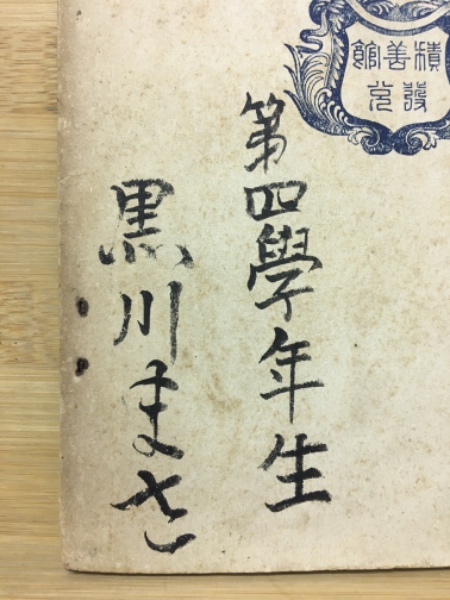 積善館發兌
第四學年生
黒川まさ